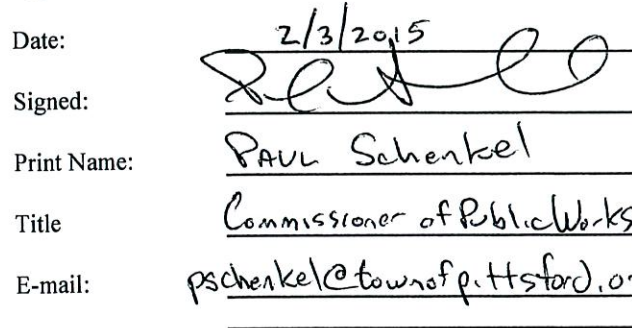 Date: 2/3/2015
Signed:
Print Name: PAUL Schenkel
Title Commissioner of Public Works
E-mail: pschenkel@townofpittsford.or